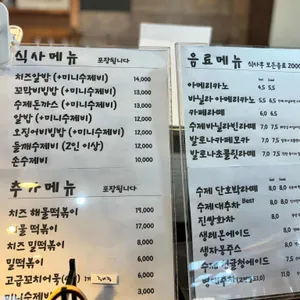 식사메뉴 포장됩니다
치즈알밥 (+미니수제비) 14,000
꼬막비빔밥 (+미니수제비) 13,000
수제돈까스 (+미니수제비) 13,000
알밥 (+미니수제비) 12,000
오징어비빔밥 (+미니수제비) 12,000
들깨수제비 (2인 이상) 12,000
손수제비 10,000
추가메뉴 포장됩니다
치즈 해물떡볶이 19,000
해물 떡볶이 17,000
치즈 밀떡볶이 8,000
밀떡볶이 6,000
6,000
미니수제비 3,000
음료메뉴 식사후 모든음료 2000
아메리카노 4.5 5.5
바닐라 아메리카노 5.5 6.5
카페라떼 6.0
수제바닐라빈라떼 7.0 7.5
발로나카페모카 7.0 7.5
발로나초콜릿라떼 7.0 7.5
수제 단호박라떼
수제대추차 Best
진쌍화차
생레몬에이드
생자몽주스